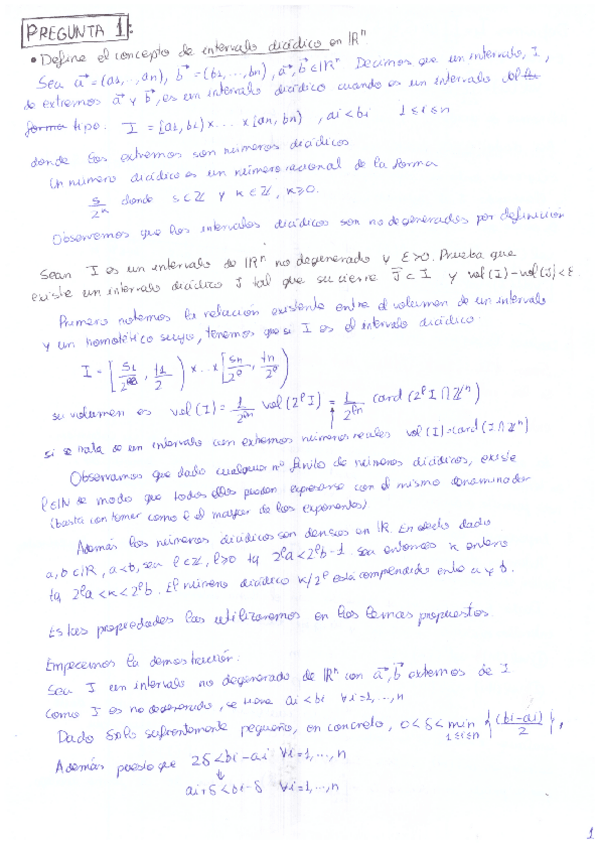 PREGUNTA 1:
• Define el concepto de intervalo diádico en ℝⁿ
Sea a⃗ = (a1, ..., an), b⃗ = (b1, ..., bn), a⃗, b⃗ ∈ ℝⁿ Decimos que un intervalo, I,
de extremos a⃗ y b⃗, es un intervalo diádico cuando es un intervalo del
forma tipo. I = [a1, b1) x ... x [an, bn) , ai < bi 1 ≤ i ≤ n
donde los extremos son números diádicos.
Un número diádico es un número racional de la forma
s/2^k donde s ∈ ℤ y k ∈ ℤ, k ≥ 0.
Observemos que los intervalos diádicos son no degenerados por definición
Sean I es un intervalo de ℝⁿ no degenerado y ε > 0. Prueba que
existe un intervalo diádico J tal que su cierre J̄ ⊂ I y vol(I) - vol(J) < ε.
Primero notemos la relación existente entre el volumen de un intervalo
y un homotético suyo, tenemos que si I es el intervalo diádico
su volumen es vol(I) = 1/2^{ℓn} vol(2^ℓ I) = 1/2^{ℓn} card(2^ℓ I ∩ ℤⁿ)
si se trata de un intervalo con extremos números reales vol(I) = card(I ∩ ℤⁿ)
Observamos que dado cualquier nº finito de números diádicos, existe
ℓ ∈ ℕ de modo que todos ellos pueden expresarse con el mismo denominador
(basta con tomar como ℓ el mayor de los exponentes)
Además los números diádicos son densos en ℝ. En efecto dado
a, b ∈ ℝ, a < b, sea ℓ ∈ ℤ, ℓ ≥ 0 tq 2^ℓ a < 2^ℓ b - 1. Sea entonces k entero
tq 2^ℓ a < k < 2^ℓ b. El número diádico k/2^ℓ está comprendido entre a y b.
Estas propiedades las utilizaremos en los temas propuestos.
Empecemos la demostración:
Sea I un intervalo no degenerado de ℝⁿ con a⃗, b⃗ extremos de I
como I es no degenerado, se tiene ai < bi ∀i = 1, ..., n
Dado δ > 0 suficientemente pequeño, en concreto, 0 < δ < min 1≤i≤n {(bi - ai)/2},
Además puesto que 2δ < bi - ai ∀i = 1, ..., n
↓
ai + δ < bi - δ ∀i = 1, ..., n
1